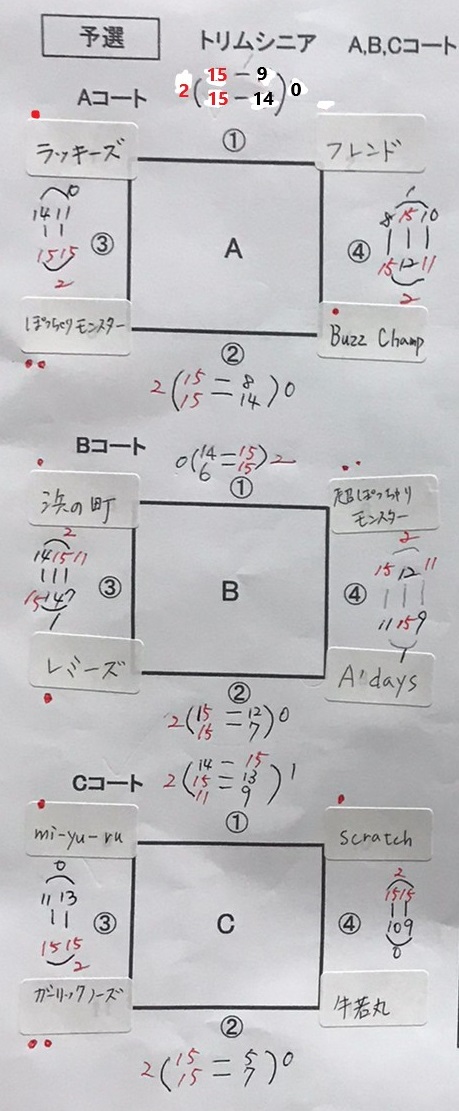 予選 トリムシニア A,B,Cコート
Aコート
2 (15 − 9
15 − 14) 0
①
ラッキーズ フレンド
0
14 11
15 15
2
③ A ④
1
8 15 10
15 12 11
2
ぽっちゃりモンスター Buzz Champ
②
2 (15 = 8
15 14) 0
Bコート
0 (14 = 15
6 15) 2
①
浜の町 超ぽっちゃり
モンスター
2
14 15 11
15 14 7
1
③ B ④
2
15 12 11
11 15 9
1
レミーズ A'days
②
2 (15 = 12
15 7) 0
Cコート
2 (14 − 15
15 = 13
11 9) 1
①
mi-yu-ru scratch
0
11 13
15 15
2
③ C ④
2
15 15
10 9
0
ガーリックノーズ 牛若丸
②
2 (15 = 5
15 7) 0